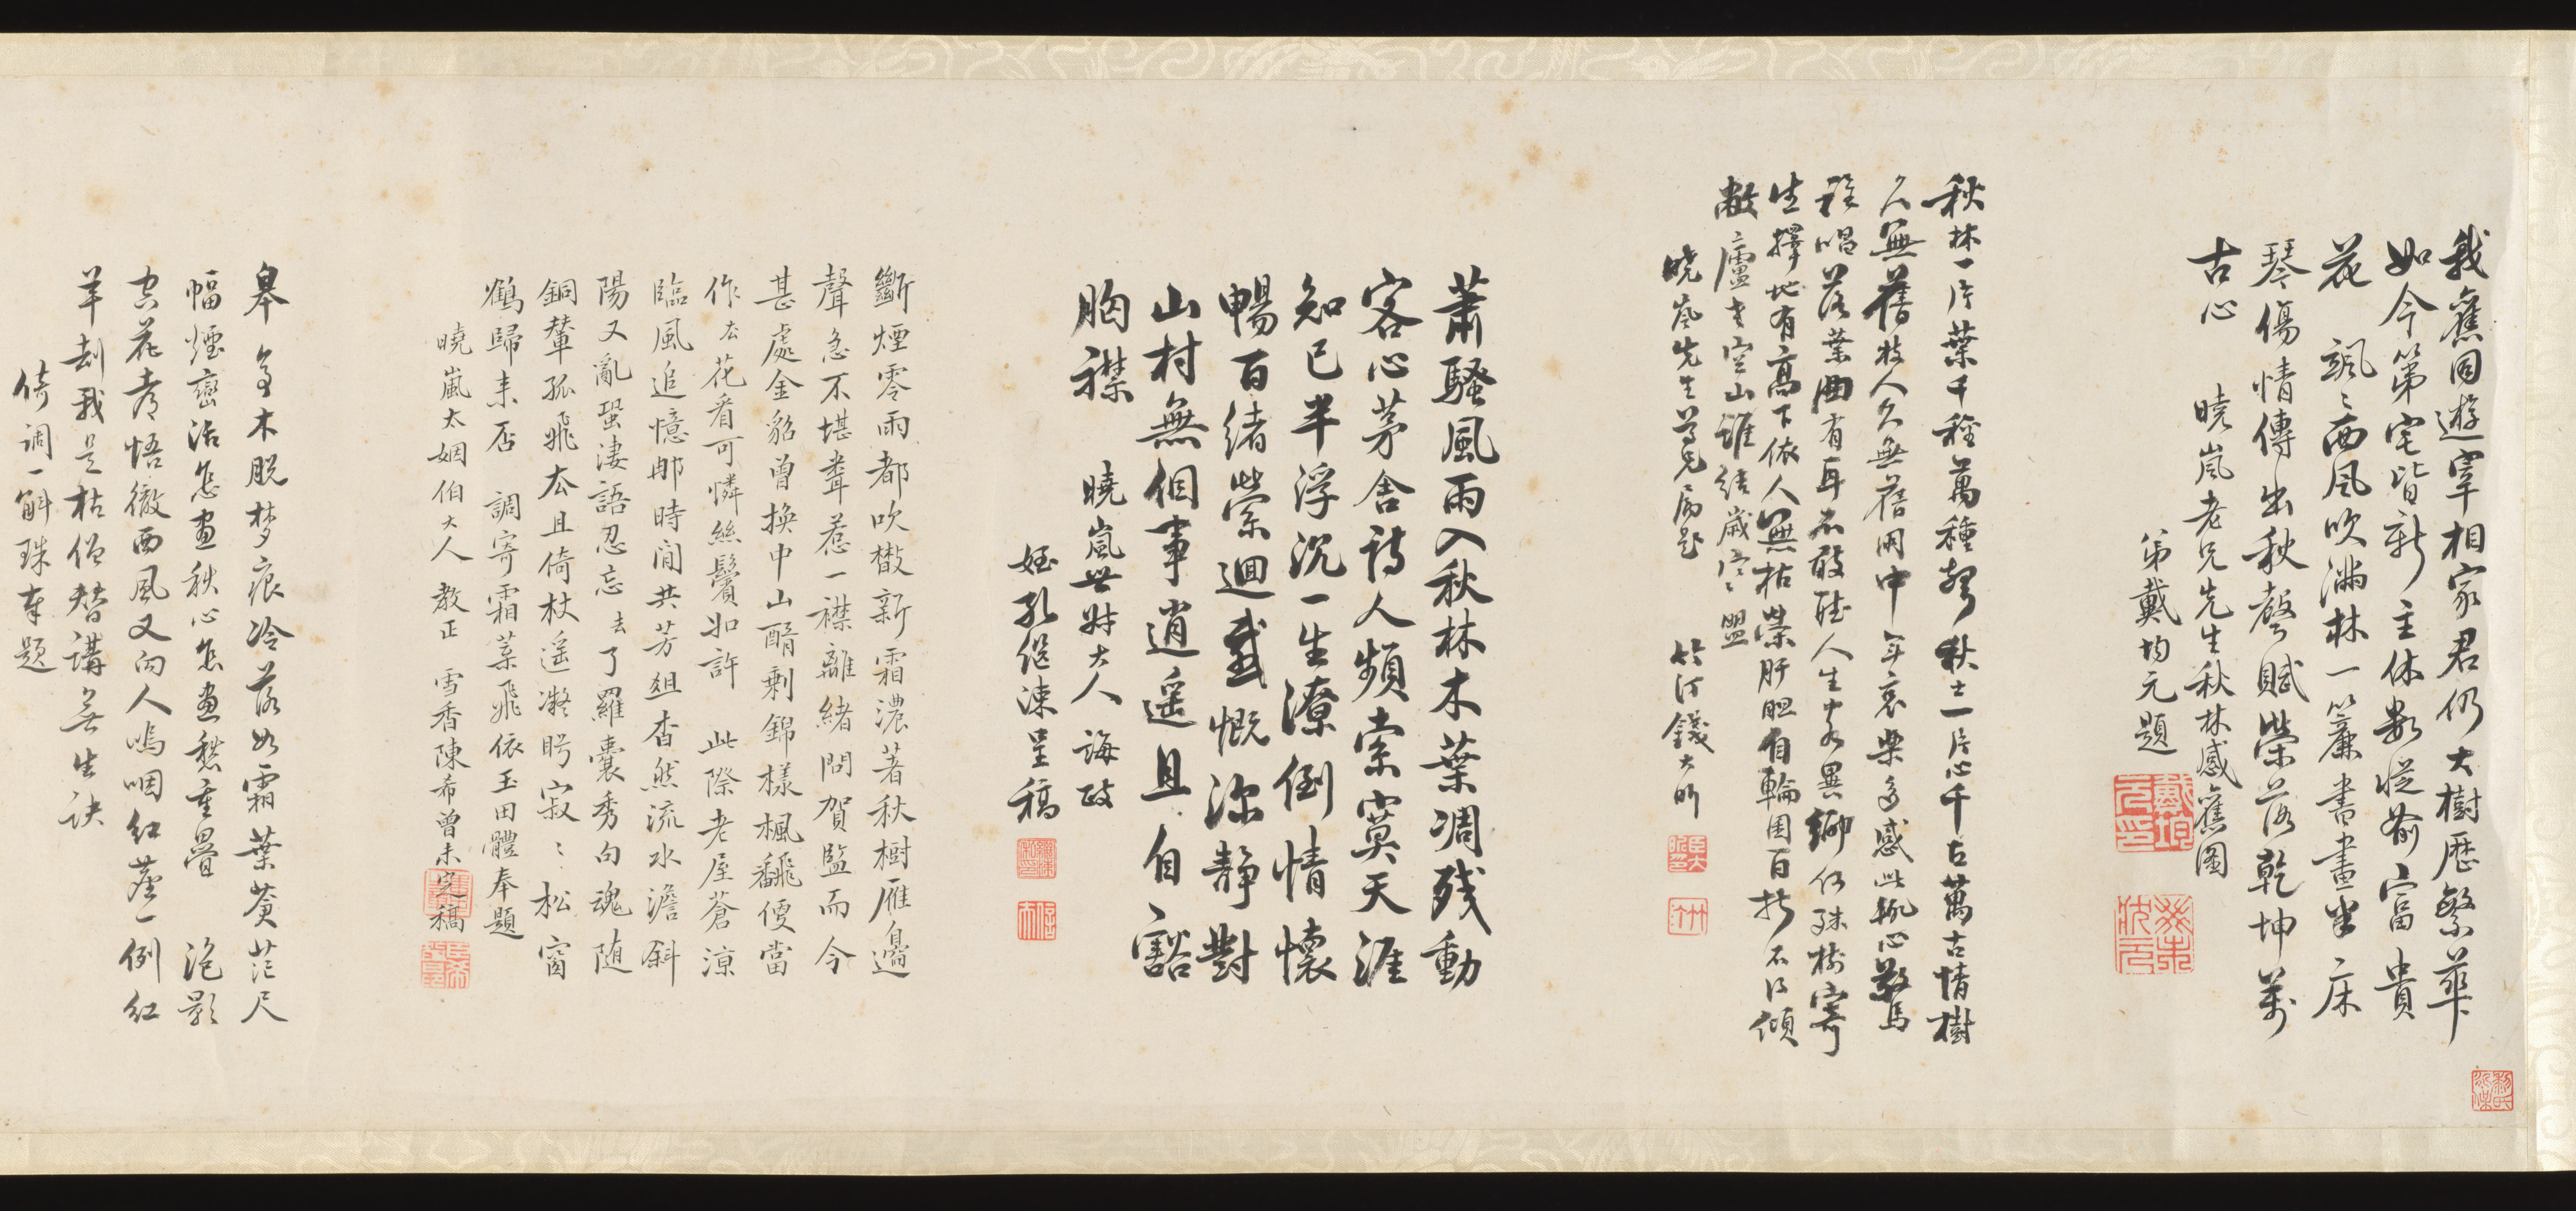 我舊同遊宰相家君仍大樹歷繁華
如今第宅皆新主休數從前富貴
花 颯〻西風吹滿林一簾書畫半床
琴傷情傳出秋聲賦榮落乾坤萬
古心
曉嵐老兄先生秋林感舊圖
弟戴均元題
秋林一片葉千種萬種聲秋士一片心千古萬古情樹
久無舊枝人久無舊朋中年哀樂多感此輒心驚
我唱落葉曲有耳不敢聽人生豈異卿何殊樹寄
生擇地有高下依人無枯榮肝胆自輪囷百折不得傾
敝廬在空山誰結歲寒盟
曉嵐先生尊兄屬題 竹汀錢大昕
蕭騷風雨入秋林木葉凋殘動
客心茅舍詩人頻索寞天涯
知已半浮沉一生潦倒情懷
暢百緒縈迴感慨深靜對
山村無個事逍遥且自豁
胸襟 曉嵐世叔大人 誨政
姪孔繼涑呈稿
斷煙零雨都吹散新霜濃著秋樹雁邊
聲急不堪聽惹一襟離緒問賀監而今
甚處金貂曾換中山醑剩錦樣楓飜便當
作厺花看可憐絲鬢如許 此際老屋蒼涼
臨風追憶那時閒共芳俎杳然流水澹斜
陽又亂蛩淒語忍忘去了羅囊秀句魂随
銅輦孤飛厺且倚杖遥凝眄寂〻松窗
鶴歸来否 調寄霜葉飛依玉田體奉題
曉嵐太姻伯大人 教正 雪香陳希曾未定稿
皋亭木脱梦痕冷落如霜葉蒼茫尺
幅煙巒活怎畫秋心怎畫愁重疊 泡影
空花老悟徹西風又向人嗚咽紅塵一例紅
羊刦我是枯僧替講無生訣
倚調一斛珠奉題